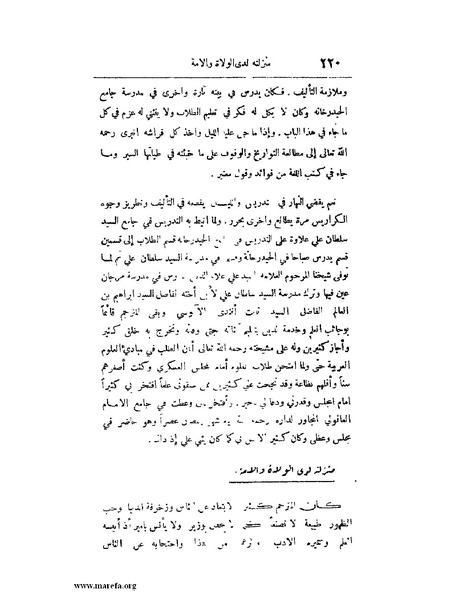 ٢٢٠ منزلته لدى الولاة والامة
وملازمة التأليف . فكان يدرس في بيته تارة واخرى في مدرسة جامع
الحيدرخانه وكان لا يكل له فكر في تعليم الطلاب ولا ينثني له عزم في كل
ما جاء في هذا الباب . وإذا ما جن عليه الليل واخذ كل فراشه انبرى رحمه
الله تعالى إلى مطالعة التواريخ والوقوف على ما خبئته في طياتها السير وما
جاء في كتب اللغة من فوائد وقول معتبر .
نعم يقضي النهار في تدريس والليل يقضه في التأليف وتطريز وجوه
الكراريس مرة يطالع واخرى يحرر . ولما انيط به التدريس في جامع السيد
سلطان علي علاوة على التدريس في الحيدرخانه قسم الطلاب إلى قسمين
قسم يدرس صباحا في الحيدرخانة في مدرسة السيد سلطان علي ثم لما
توفى شيخنا المرحوم العلامة السيد علي علاء الدين رس في مدرسة مرجان
عين فيها وترك مدرسة السيد سلطان علي لأبن أخته الفاضل السيد ابراهيم بن
العالم الفاضل السيد ثابت أفندى الآلوسي وبقى المترجم قائماً
بوجائب العلم وخدمة الدين حتى وفاته وتخرج به خلق كثير
وأجاز كثيرين وله على مشيخته رحمه الله تعالى أن الطلب في مبادئ العلوم
العربية حتى ولما امتحن طلاب العلوم أمام مجلس العسكري وكنت أصغرهم
سناً وأقلهم بضاعة وقد نجحت على كثيرين ممن سبقوني علماً افتخر بي كثيراً
امام المجلس وقدرني ودعا لي وعظت في جامع الامام
العاقولي المجاور لداره رحمه شهر عصراً وهو حاضر في
مجلس وعظي وكان كثير ما كان يثني علي إذ ذاك .
منزلته لدى الولاة والامة .
كان المترجم كثير الابتعاد عن الناس وزخرفة الدنيا وحب
الظهور طبيعة لا تصنعاً بوزير ولا يأنس بامير أذ أنيسه
العلم وسميره الادب من هذا واحتجابه عن الناس
www.marefa.org